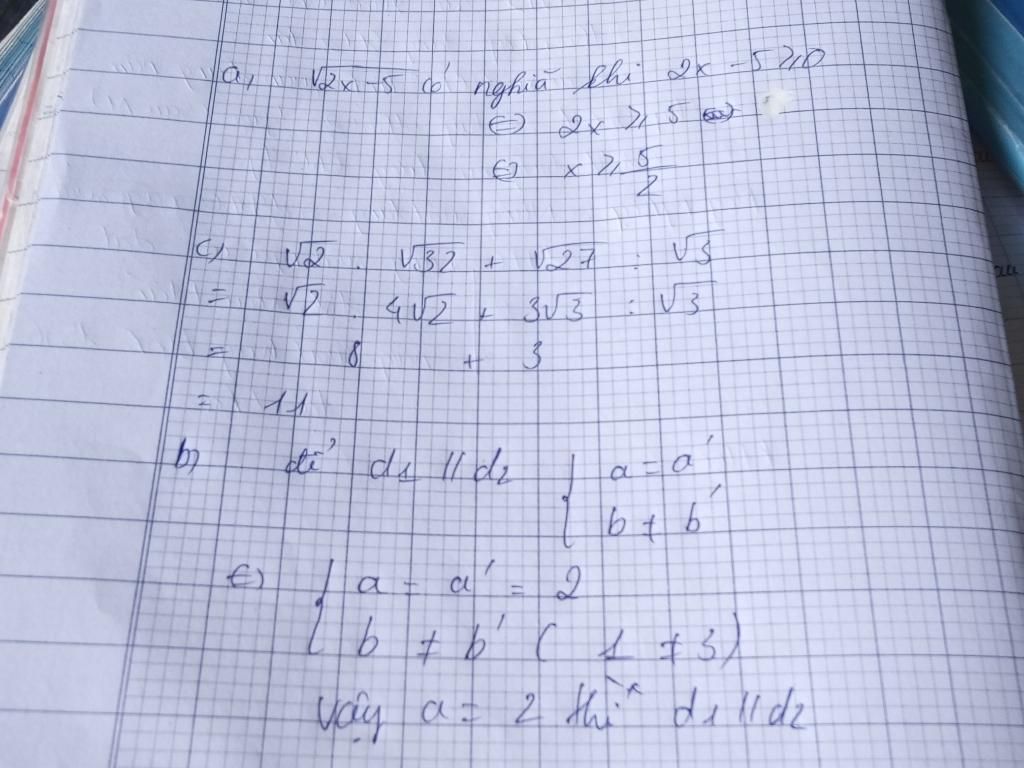 a, √2x-5 có nghĩa khi 2x - 5 ⩾ 0
⇔ 2x ⩾ 5
⇔ x ⩾ 5/2
c, √2 . √32 + √27 : √3
= √2 . 4√2 + 3√3 : √3
= 8 + 3
= 11
b, để d1 // d2 { a = a'
b ≠ b'
⇔ { a = a' = 2
b ≠ b' ( 1 ≠ 3)
Vậy a = 2 thì d1 // d2